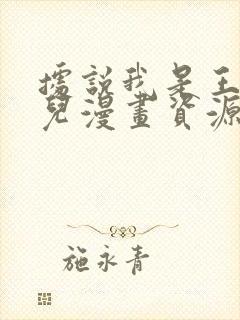 據說我是王
兒漫畫資源
施永青